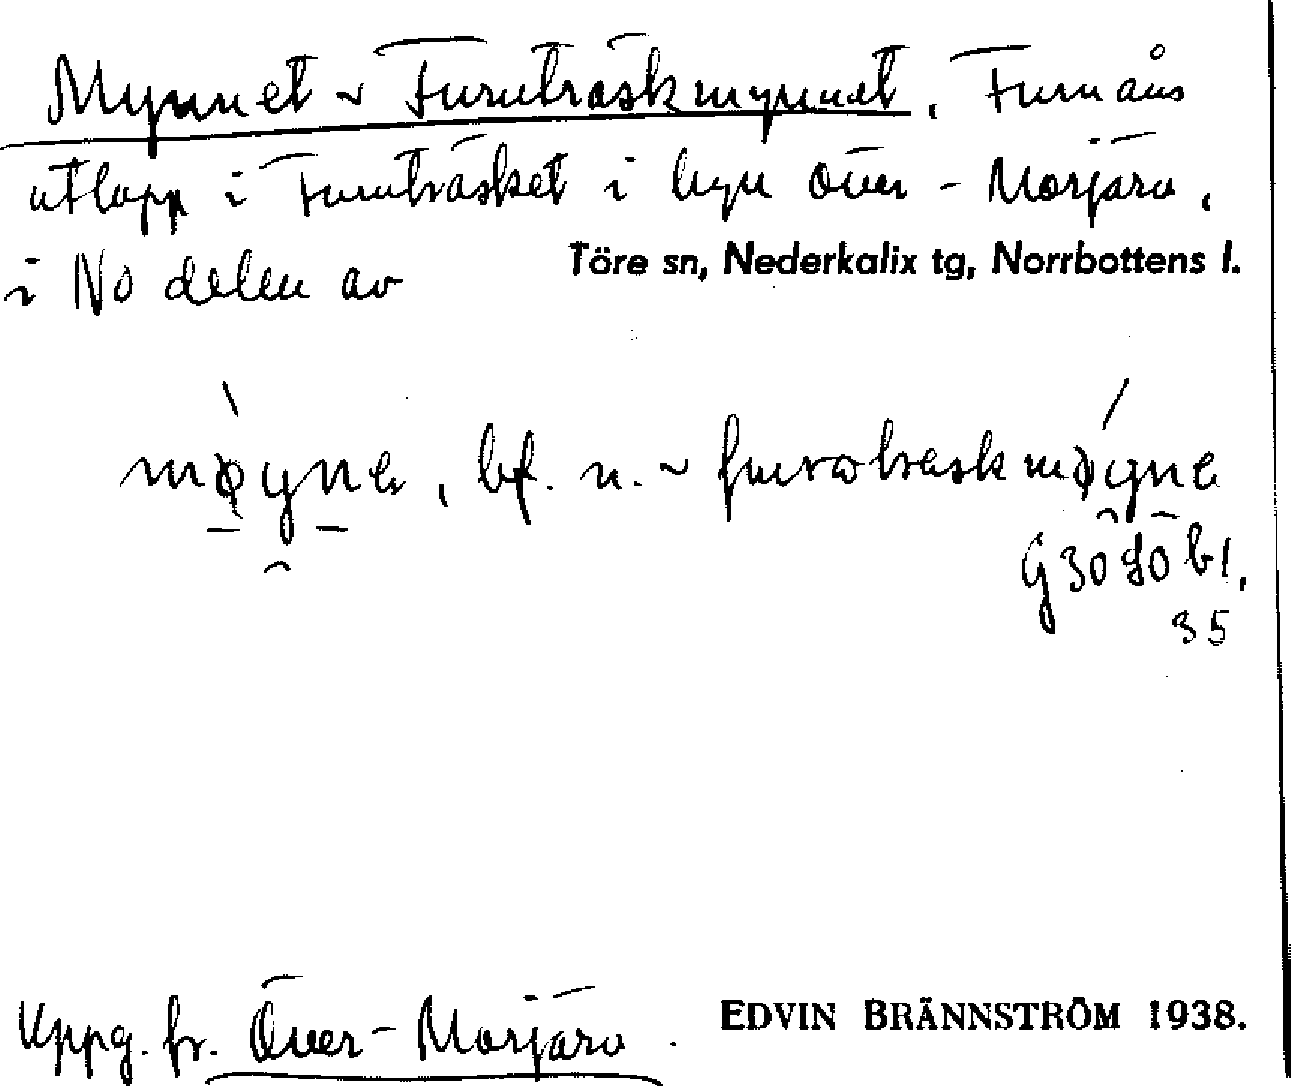 Mynnet ~ Furuträskmynnet, Furuåns
utlopp i Furuträsket i byn Över-Morjärv,
i NO delen av Töre sn, Nederkalix tg, Norrbottens l.
møyne, bf. n. ~ furotraskmøyne
G 3080 bl.
35
Uppg. fr. Över-Morjärv. EDVIN BRÄNNSTRÖM 1938.